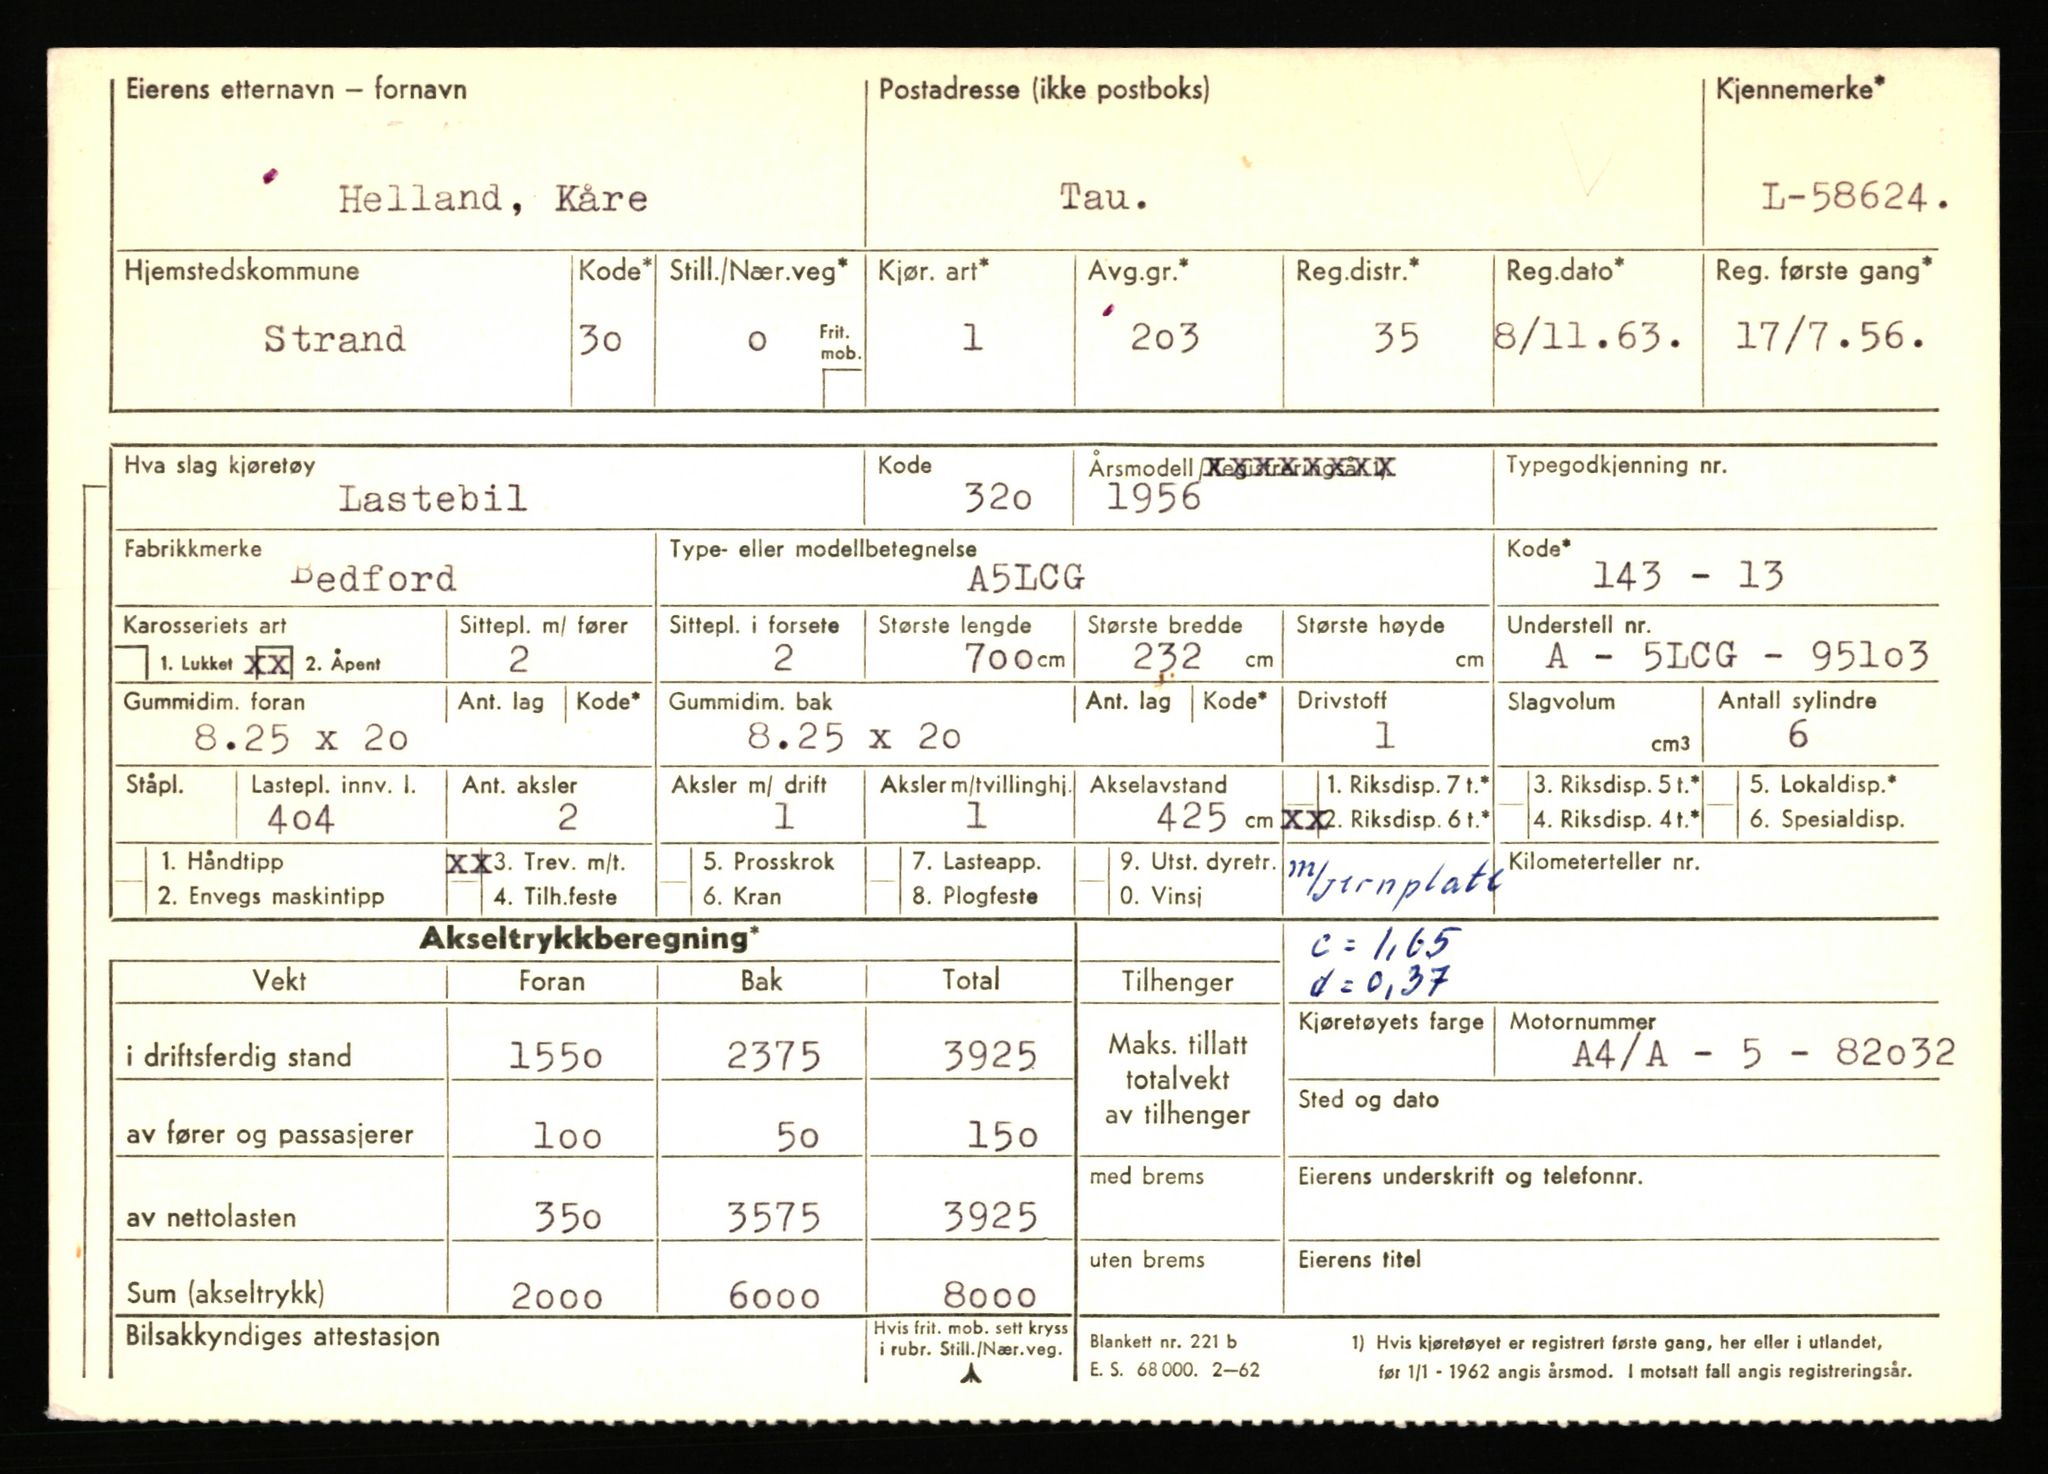 Eierens etternavn – fornavn Postadresse (ikke postboks) Kjennemerke*
Helland, Kåre Tau. L-58624.
Hjemstedskommune Kode* Still./Nær.veg* Kjør. art* Avg.gr.* Reg.distr.* Reg.dato* Reg. første gang*
Strand 30 0 Frit. mob. 1 203 35 8/11.63. 17/7.56.
Hva slag kjøretøy Kode Årsmodell/Registreringsår 1) Typegodkjenning nr.
Lastebil 320 1956
Fabrikkmerke Type- eller modellbetegnelse Kode*
Bedford A5LCG 143 - 13
Karosseriets art Sittepl. m/ fører Sittepl. i forsete Største lengde Største bredde Største høyde Understell nr.
1. Lukket XX 2. Åpent 2 2 700 cm 232 cm cm A - 5LCG - 95103
Gummidim. foran Ant. lag Kode* Gummidim. bak Ant. lag Kode* Drivstoff Slagvolum Antall sylindre
8.25 x 20 8.25 x 20 1 cm3 6
Ståpl. Lastepl. innv. l. Ant. aksler Aksler m/ drift Aksler m/tvillinghj. Akselavstand 1. Riksdisp. 7 t.* 3. Riksdisp. 5 t.* 5. Lokaldisp.*
404 2 1 1 425 cm XX 2. Riksdisp. 6 t.* 4. Riksdisp. 4 t.* 6. Spesialdisp.
1. Håndtipp XX 3. Trev. m/t. 5. Prosskrok 7. Lasteapp. 9. Utst. dyretr. m/jernplate Kilometerteller nr.
2. Envegs maskintipp 4. Tilh.feste 6. Kran 8. Plogfeste 0. Vinsj
Akseltrykkberegning* c = 1,65
Vekt Foran Bak Total Tilhenger d = 0,37
Kjøretøyets farge Motornummer
i driftsferdig stand 1550 2375 3925 Maks. tillatt totalvekt av tilhenger A4/A - 5 - 82032
Sted og dato
av fører og passasjerer 100 50 150
med brems Eierens underskrift og telefonnr.
av nettolasten 350 3575 3925
uten brems Eierens titel
Sum (akseltrykk) 2000 6000 8000
Bilsakkyndiges attestasjon Hvis frit. mob. sett kryss i rubr. Still./Nær.veg. Blankett nr. 221 b 1) Hvis kjøretøyet er registrert første gang, her eller i utlandet,
E. S. 68 000. 2–62 før 1/1 - 1962 angis årsmod. I motsatt fall angis registreringsår.